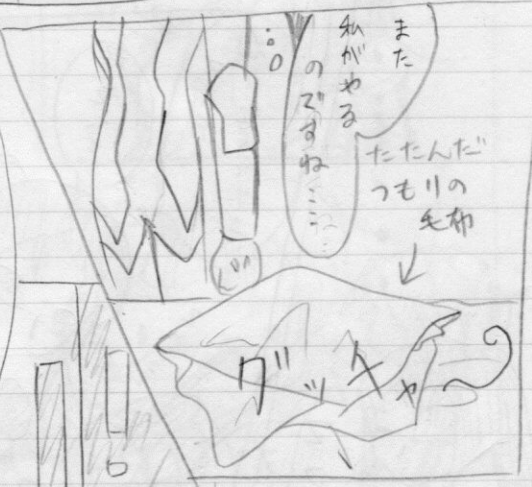 また
私がやる
のですね…
たたんだ
つもりの
毛布
グッチャ